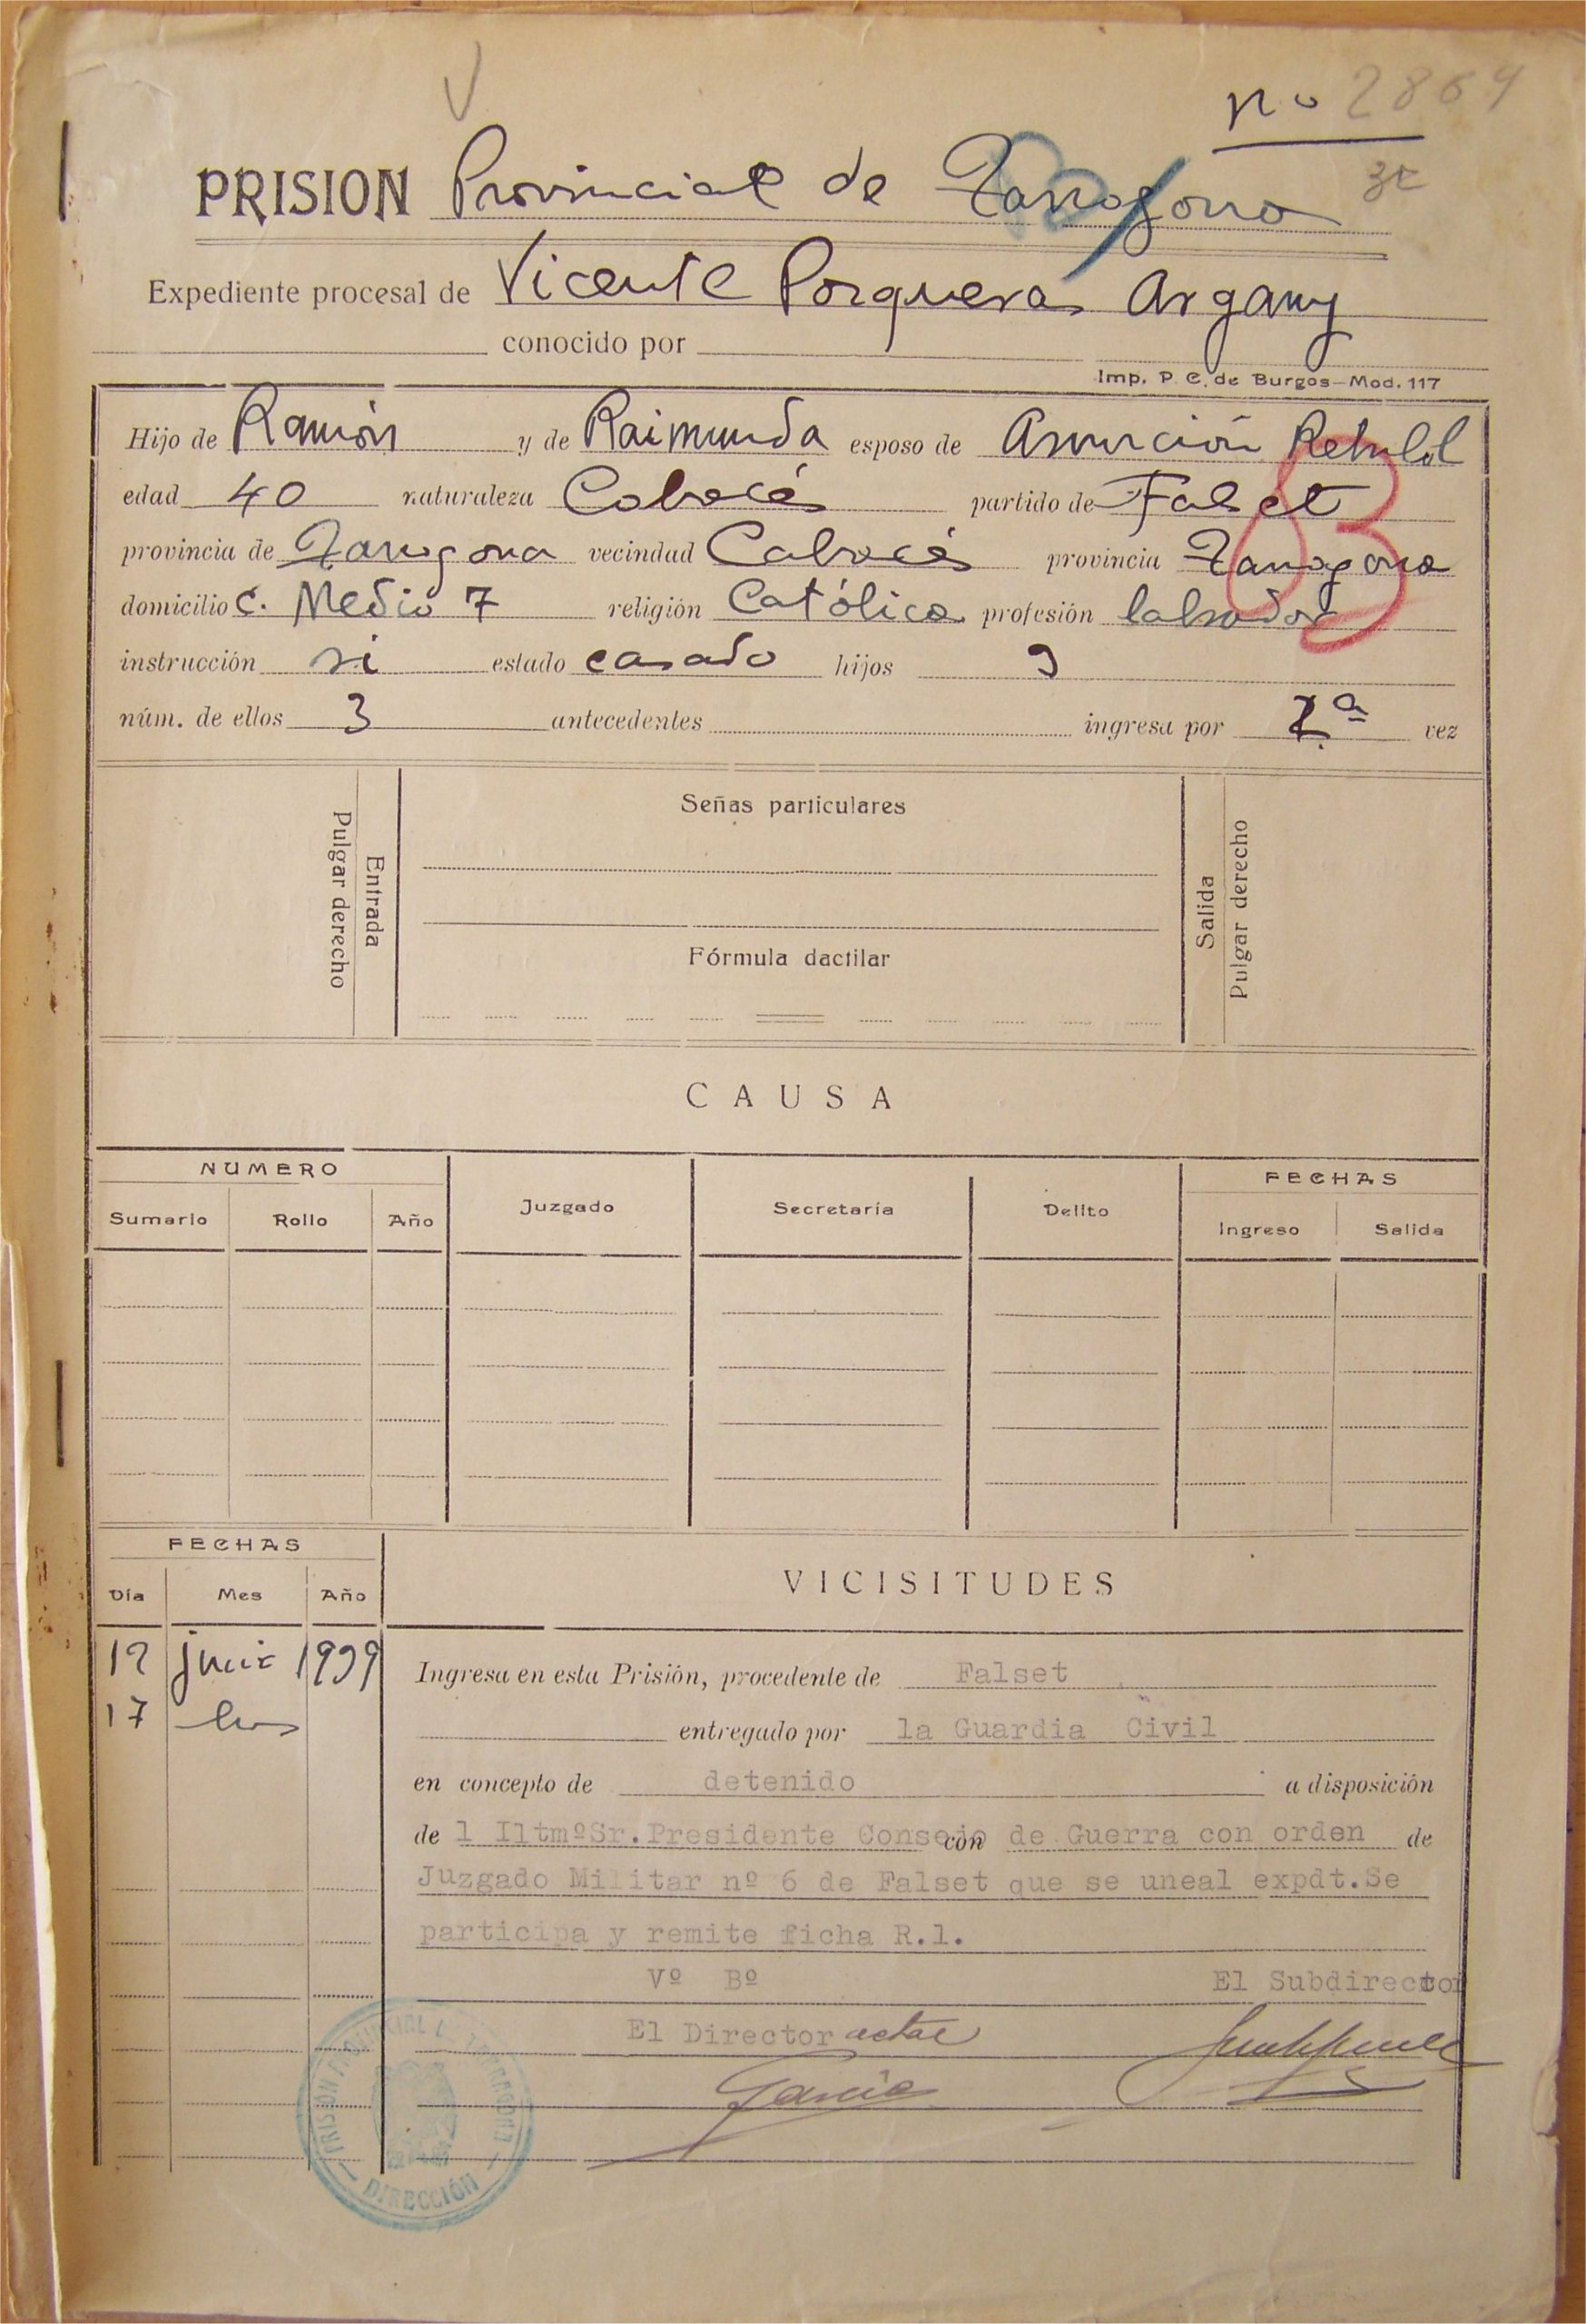 nº 2864
PRISION Provincial de Tarragona
Expediente procesal de Vicente Porqueras Argany
conocido por
Imp. P. C. de Burgos-Mod. 117
Hijo de Ramón y de Raimunda esposo de Asunción Rebull
edad 40 naturaleza Cabacés partido de Falset
provincia de Tarragona vecindad Cabacés provincia Tarragona
domicilio C. Medio 7 religión Católica profesión labrador
instrucción si estado casado hijos 3
núm. de ellos 3 antecedentes ingresa por 1ª vez
83
Señas particulares
Entrada
Pulgar derecho
Fórmula dactilar
Salida
Pulgar derecho
CAUSA
NUMERO FECHAS
Sumario Rollo Año Juzgado Secretaría Delito Ingreso Salida
FECHAS
Día Mes Año VICISITUDES
12 junio 1939 Ingresa en esta Prisión, procedente de Falset
17 entregado por la Guardia Civil
en concepto de detenido a disposición
de l IltmºSr.Presidente Consejo con de Guerra con orden de
Juzgado Militar nº 6 de Falset que se uneal expdt.Se
participa y remite ficha R.1.
Vº Bº El Subdirector
El Director actal
García
PRISIÓN PROVINCIAL DE TARRAGONA
DIRECCIÓN